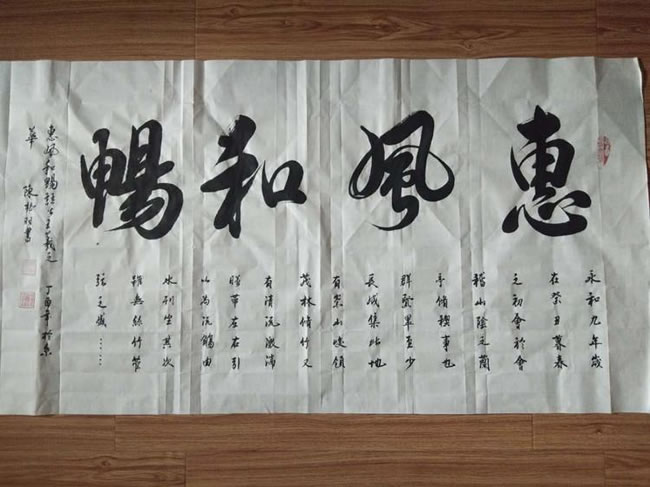 惠風和暢
永和九年歲
在癸丑暮春
之初會於會
稽山陰之蘭
亭脩稧事也
群賢畢至少
長咸集此地
有崇山峻領
茂林脩竹又
有清流激湍
暎帶左右引
以為流觴曲
水列坐其次
雖無絲竹管
弦之盛……
惠風和暢王羲之 丁酉年於京
華 陳書